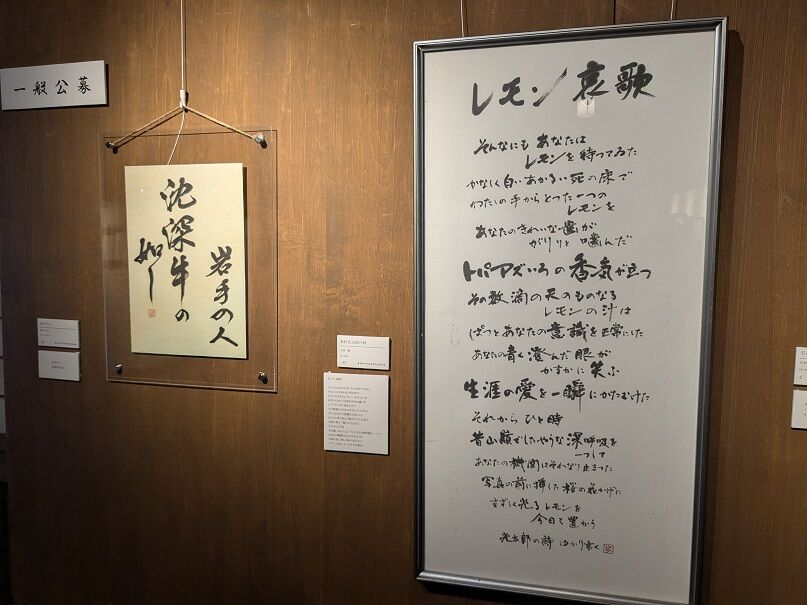 一般公募
岩手の人
沈深牛の
如し
レモン哀歌
そんなにもあなたは
レモンを待つてゐた
かなしく白いあかるい死の床で
わたしの手からとつた一つの
レモンを
あなたのきれいな歯が
がりりと噛んだ
トパアズいろの香気が立つ
その数滴の天のものなる
レモンの汁は
ぱつとあなたの意識を正常にした
あなたの青く澄んだ眼が
かすかに笑ふ
生涯の愛を一瞬にかたむけた
それからひと時
昔山巓でしたやうな深呼吸を
一つして
あなたの機関はそれなり止まつた
写真の前に挿した桜の花かげに
すずしく光るレモンを
今日も置かう
光太郎の詩 ゆかり書く